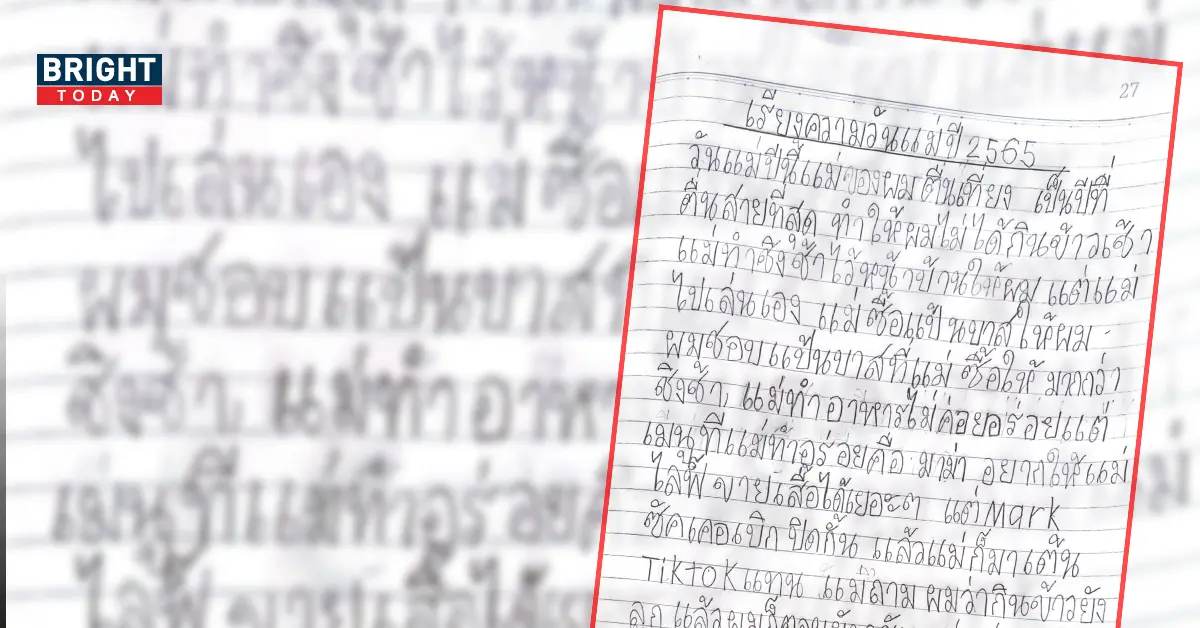 BRIGHT
TODAY
27
เรียงความวันแม่ปี 2565
วันแม่ปีนี้แม่ของผมตื่นเที่ยง เป็นปีที่
ตื่นสายที่สุด ทำให้ผมไม่ได้กินข้าวเช้า
แม่ทำชิงช้าไว้หน้าบ้านให้ผม แต่แม่
ไปเล่นเอง แม่ซื้อแป้นบาสให้ผม
ผมชอบแป้นบาสที่แม่ซื้อให้มากกว่า
ชิงช้า, แม่ทำอาหารไม่ค่อยอร่อยแต่
เมนูที่แม่ทำอร่อยคือ มาม่า อยากให้แม่
ไลฟ์ ขายเสื้อได้เยอะๆ แต่ Mark
ซัคเคอเบิก ปิดกั้น แล้วแม่ก็มาเต้น
Tiktok แทน แม่ถามผมว่ากินข้าวยัง
ลูก แล้วผมก็
ไปเล่นเอง แม่ซื้อ
ผมชอบแป้นบาส
ชิงช้า, แม่ทำอาห
เมนูที่แม่ทำอร่อย